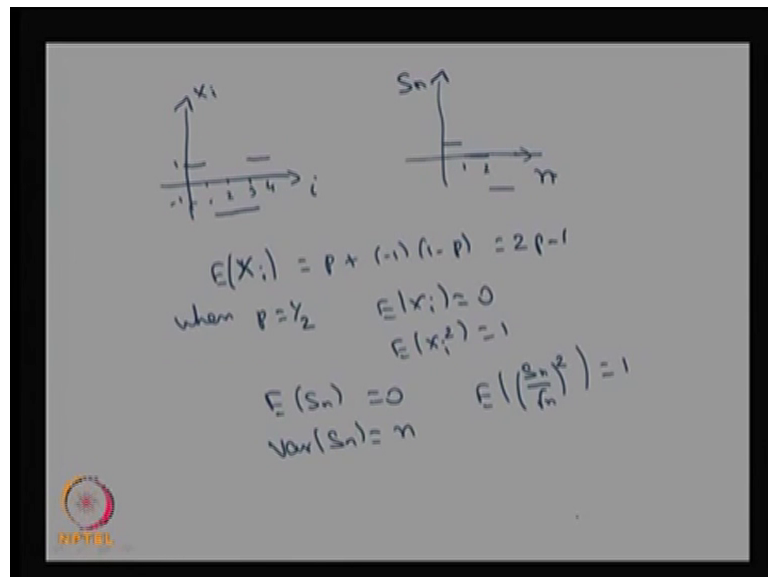 Xi Sn
1
-1 1 2 3 4 i 1 2 n
E(Xi) = p + (-1) (1-p) = 2p-1
when p = 1/2 E(Xi) = 0
E(Xi²) = 1
E(Sn) = 0 E((Sn/√n)²) = 1
Var(Sn) = n
NPTEL